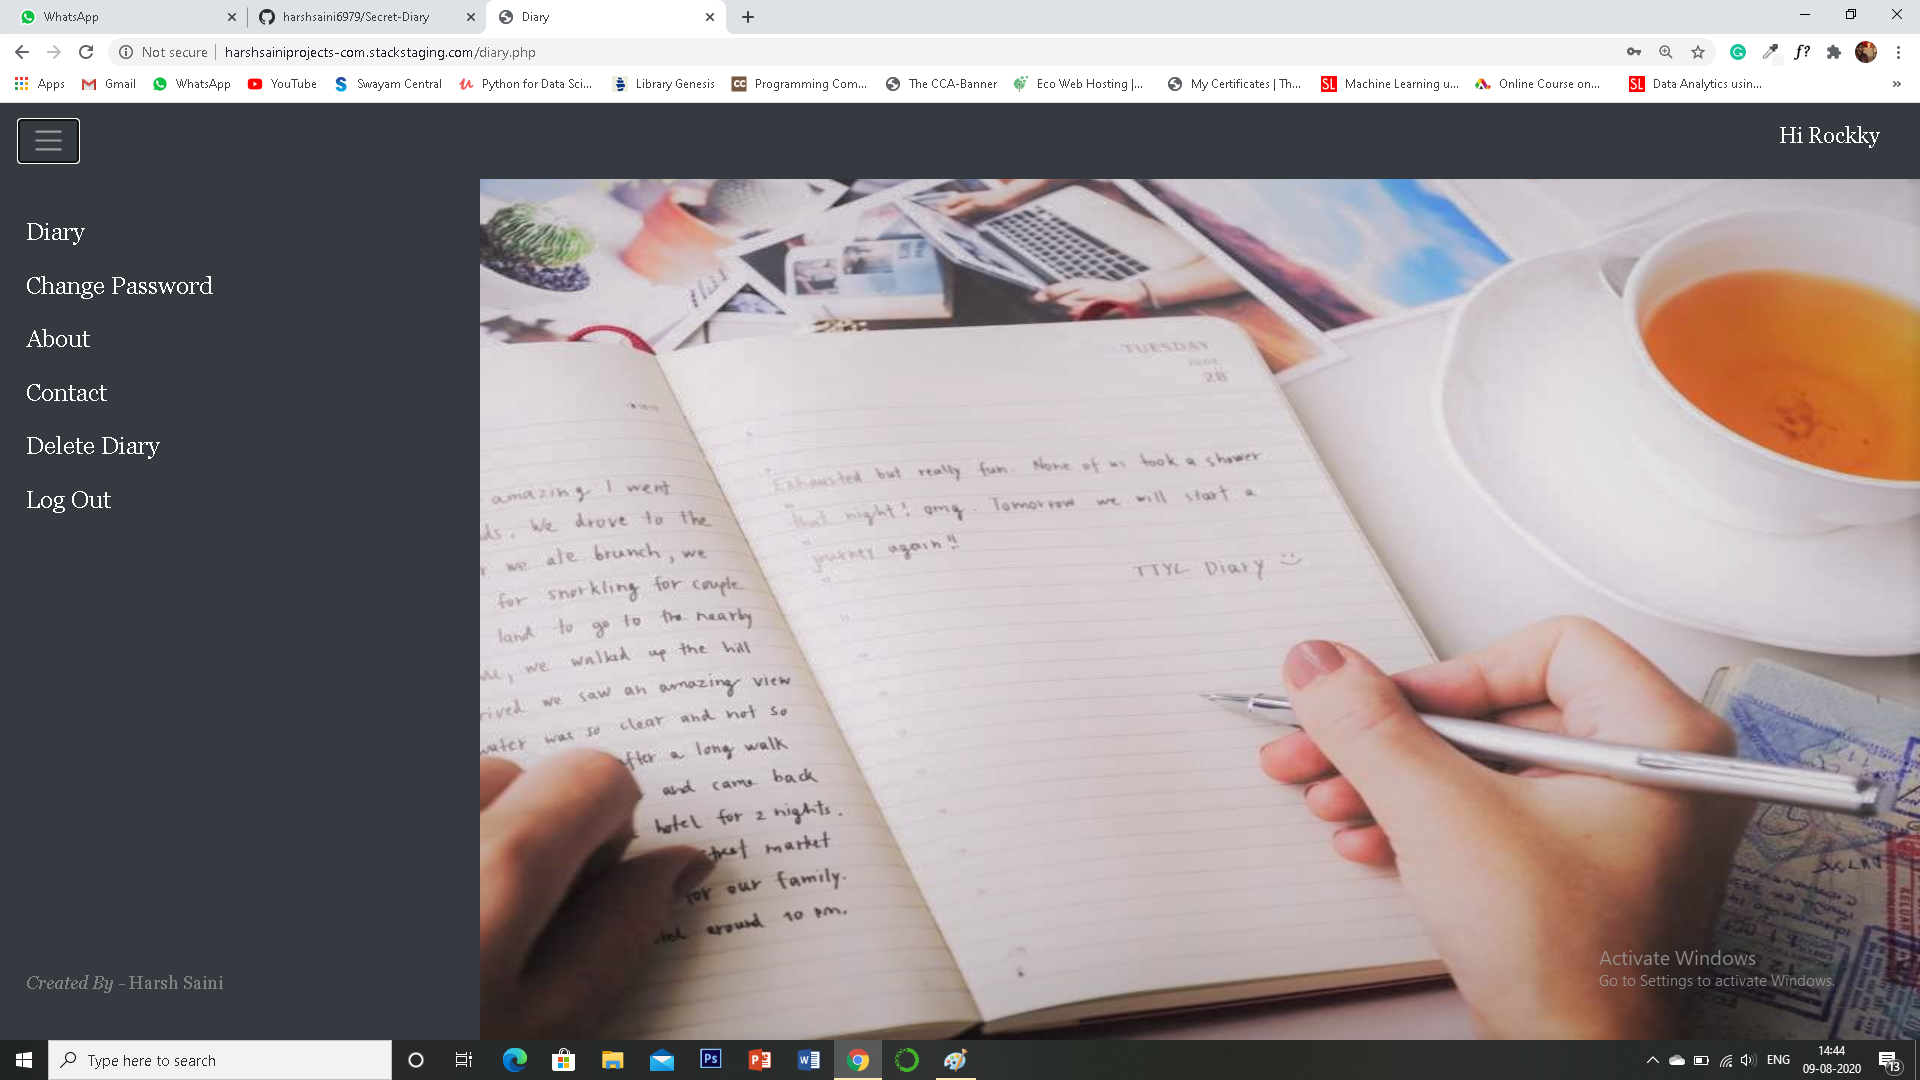 WhatsApp
harshsaini6979/Secret-Diary
Diary
Not secure
harshsainiprojects-com.stackstaging.com/diary.php
f?
Apps
Gmail
WhatsApp
YouTube
Swayam Central
Python for Data Sci...
Library Genesis
CC
Programming Com...
The CCA-Banner
Eco Web Hosting |...
My Certificates | Th...
SL
Machine Learning u...
Online Course on...
SL
Data Analytics usin...
»
Hi Rockky
Diary
Change Password
About
Contact
Delete Diary
Log Out
Created By - Harsh Saini
amazing I went
ds. We drove to the
we ate brunch, we
for snorkling for couple
land to go to the nearby
we walked up the hill
rived we saw an amazing view
water was so clear and not so
after a long walk
and came back
hotel for 2 nights.
market
for our family.
around 10 pm.
TUESDAY
June
28
Exhausted but really fun. None of us took a shower
that night! omg. Tomorrow we will start a
journey again!!
TTYL Diary
Activate Windows
Go to Settings to activate Windows.
Type here to search
Ps
ENG
14:44
09-08-2020
13